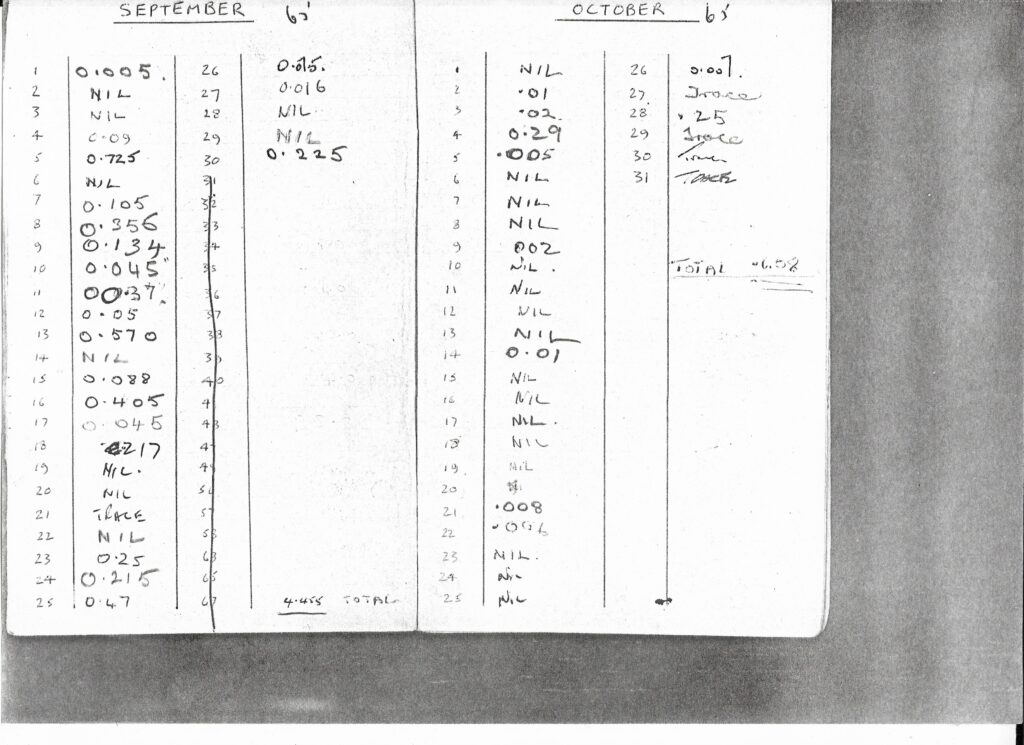 SEPTEMBER 65
1 0.005.
2 NIL
3 NIL
4 0.09
5 0.725
6 NIL
7 0.105
8 0.356
9 0.134
10 0.045
11 00.37.
12 0.05
13 0.570
14 NIL
15 0.088
16 0.405
17 0.045
18 217
19 NIL.
20 NIL
21 TRACE
22 NIL
23 0.25
24 0.215
25 0.47
26
27 0.016
28 NIL.
29 NIL
30 0.225
31
32
33
34
35
36
37
38
39
40
4
43
4
4
5
57
58
68
65
67
4.455 TOTAL
OCTOBER 65
1 NIL
2 .01
3 .02.
4 0.29
5 .005
6 NIL
7 NIL
8 NIL
9 002
10 NIL.
11 NIL
12 NIL
13 NIL
14 0.01
15 NIL
16 NIL
17 NIL.
18 NIL
19 NIL
20
21 .008
22
23 NIL.
24 NIL
25 NIL
26 0.007.
27 Trace
28 .25
29 Trace
30 Trace
31 TRACE
TOTAL